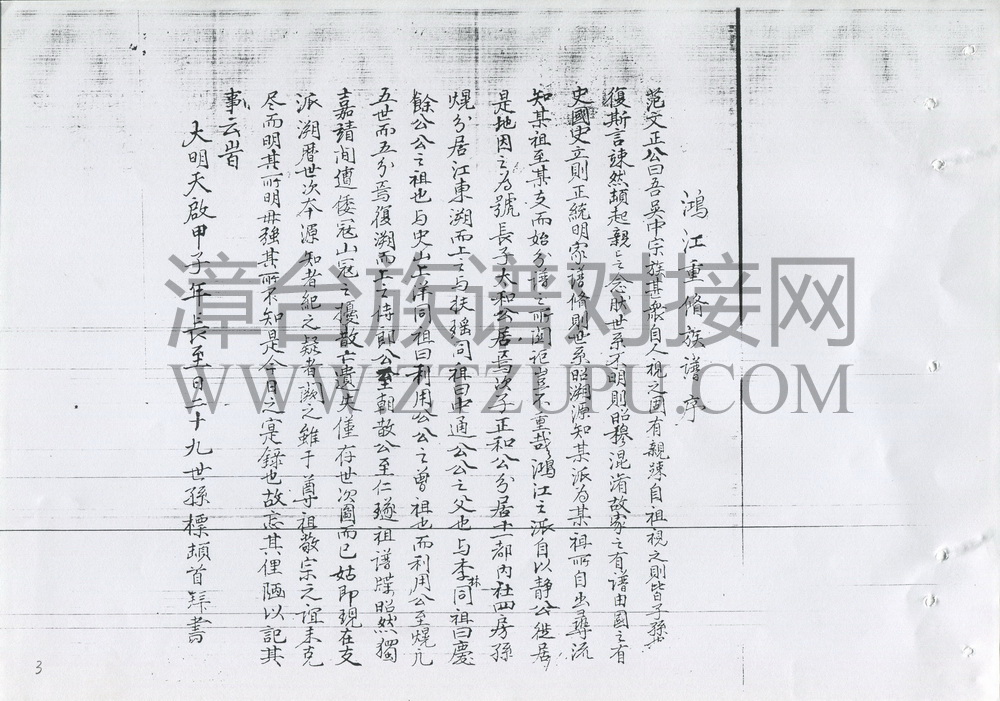 鴻江重脩族譜序
范文正公曰吾吳中宗族甚衆自人視之固有親疎自祖視之則皆子孫也
復斯言竦然頡起親之念肰世系不明則昭穆混淆故家之有譜由國之有
史國史立則正統明家譜脩則世系昭溯源知某派为某祖所自出尋流
知某祖至某支而始分譜之所関記豈不重哉鴻江之派自以靜公徙居
是地因之为號長子太和公居焉次子正和公分居十一都內社四房孫
焜分居江東溯而上之与扶瑶同祖曰中通公公之父也与李林同祖曰慶
餘公公之祖也与史山上洋同祖曰利用公公之曾祖也而利用公至焜凢
五世而五分焉復溯而上之侍郎公至朝散公至仁璲祖譜牒昭然獨
嘉靖间遭倭冦山冦之擾散亡遺失僅存世次圖而已姑即現在支
派溯曆世次本源知者紀之疑者闕之雖于尊祖敬宗之誼未克
尽而明其所明毋强其所不知是今日之寔錄也故忘其俚陋以記其
事云峕
大明天啟甲子年長至日二十九世孫標頡首拜書
漳台族谱对接网
WWW.ZTZUPU.COM
3